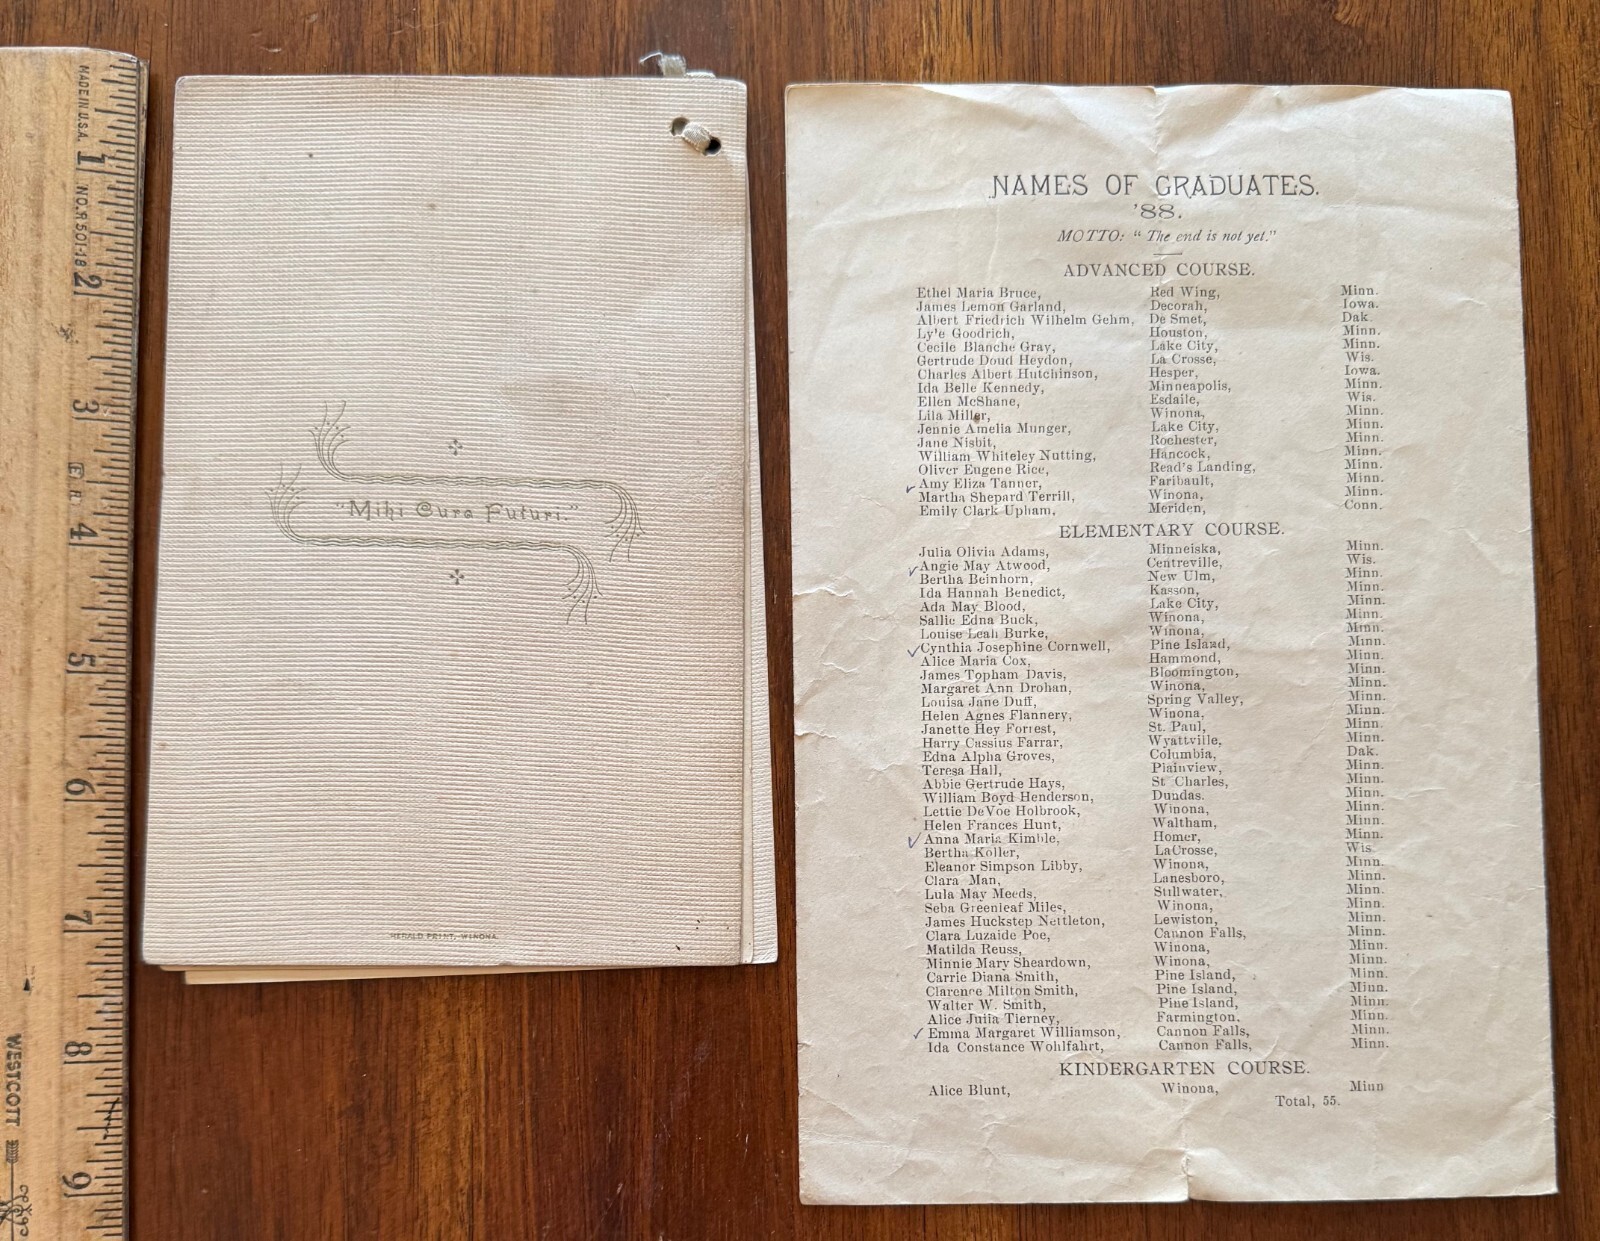 MADE IN U.S.A.
NO. R501-18
1
2
3
4
5
6
7
8
9
WESTCOTT
"Mihi Cura Futuri."
HERALD PRINT, WINONA.
NAMES OF GRADUATES.
'88.
MOTTO: "The end is not yet."
ADVANCED COURSE.
Ethel Maria Bruce, Red Wing, Minn.
James Lemon Garland, Decorah, Iowa.
Albert Friedrich Wilhelm Gehm, De Smet, Dak.
Ly'e Goodrich, Houston, Minn.
Cecile Blanche Gray, Lake City, Minn.
Gertrude Doud Heydon, La Crosse, Wis.
Charles Albert Hutchinson, Hesper, Iowa.
Ida Belle Kennedy, Minneapolis, Minn.
Ellen McShane, Esdaile, Wis.
Lila Miller, Winona, Minn.
Jennie Amelia Munger, Lake City, Minn.
Jane Nisbit, Rochester, Minn.
William Whiteley Nutting, Hancock, Minn.
Oliver Eugene Rice, Read's Landing, Minn.
Amy Eliza Tanner, Faribault, Minn.
Martha Shepard Terrill, Winona, Minn.
Emily Clark Upham, Meriden, Conn.
ELEMENTARY COURSE.
Julia Olivia Adams, Minneiska, Minn.
Angie May Atwood, Centreville, Wis.
Bertha Beinhorn, New Ulm, Minn.
Ida Hannah Benedict, Kasson, Minn.
Ada May Blood, Lake City, Minn.
Sallie Edna Buck, Winona, Minn.
Louise Leah Burke, Winona, Minn.
Cynthia Josephine Cornwell, Pine Island, Minn.
Alice Maria Cox, Hammond, Minn.
James Topham Davis, Bloomington, Minn.
Margaret Ann Drohan, Winona, Minn.
Louisa Jane Duff, Spring Valley, Minn.
Helen Agnes Flannery, Winona, Minn.
Janette Hey Forrest, St. Paul, Minn.
Harry Cassius Farrar, Wyattville, Minn.
Edna Alpha Groves, Columbia, Dak.
Teresa Hall, Plainview, Minn.
Abbie Gertrude Hays, St Charles, Minn.
William Boyd Henderson, Dundas. Minn.
Lettie DeVoe Holbrook, Winona, Minn.
Helen Frances Hunt, Waltham, Minn.
Anna Maria Kimble, Homer, Minn.
Bertha Koller, LaCrosse, Wis
Eleanor Simpson Libby, Winona, Minn.
Clara Man, Lanesboro, Minn.
Lula May Meeds, Stillwater, Minn.
Seba Greenleaf Miles, Winona, Minn.
James Huckstep Nettleton, Lewiston, Minn.
Clara Luzaide Poe, Cannon Falls, Minn.
Matilda Reuss, Winona, Minn.
Minnie Mary Sheardown, Winona, Minn.
Carrie Diana Smith, Pine Island, Minn.
Clarence Milton Smith, Pine Island, Minn.
Walter W. Smith, Pine Island, Minn.
Alice Julia Tierney, Farmington. Minn.
Emma Margaret Williamson, Cannon Falls, Minn.
Ida Constance Wohlfahrt, Cannon Falls, Minn.
KINDERGARTEN COURSE.
Alice Blunt, Winona, Minn
Total, 55.